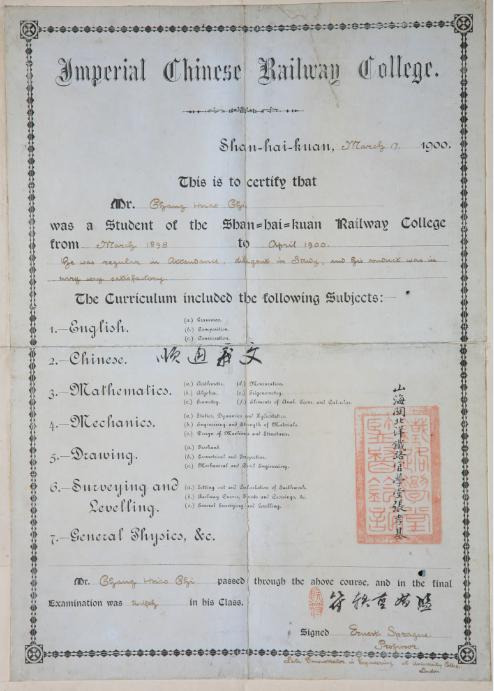 Imperial Chinese Railway College.
Shan-hai-kuan, March 17, 1900.
This is to certify that
Mr. Chang Hsiao Chi
was a Student of the Shan=hai=kuan Railway College
from March 1898 to April 1900.
He was regular in Attendance, diligent in Study, and his conduct was in
every way satisfactory.
The Curriculum included the following Subjects:—
1.—English. (a.) Grammar.
(b.) Composition.
(c.) Conversation.
2.—Chinese. 順適義文
3.—Mathematics. (a.) Arithmetic. (d.) Mensuration.
(b.) Algebra. (e.) Trigonometry.
(c.) Geometry. (f.) Elements of Anal. Conic. and Calculus.
4.—Mechanics. (a.) Statics, Dynamics and Hydrostatics.
(b.) Engineering and Strength of Materials.
(c.) Design of Machines and Structures.
5.—Drawing. (a.) Freehand.
(b.) Geometrical and Projection.
(c.) Mechanical and Civil Engineering.
6.—Surveying and (a.) Setting out and Calculation of Earthwork.
Levelling. (b.) Railway Curves, Points and Crossings, &c.
(c.) General Surveying and Levelling.
7.—General Physics, &c.
山海關北洋鐵路官學堂張孝基
Mr. Chang Hsiao Chi passed through the above course, and in the final
Examination was in his Class.
Signed Ernest Sprague
Professor
Late Demonstrator in Engineering at University College,
London